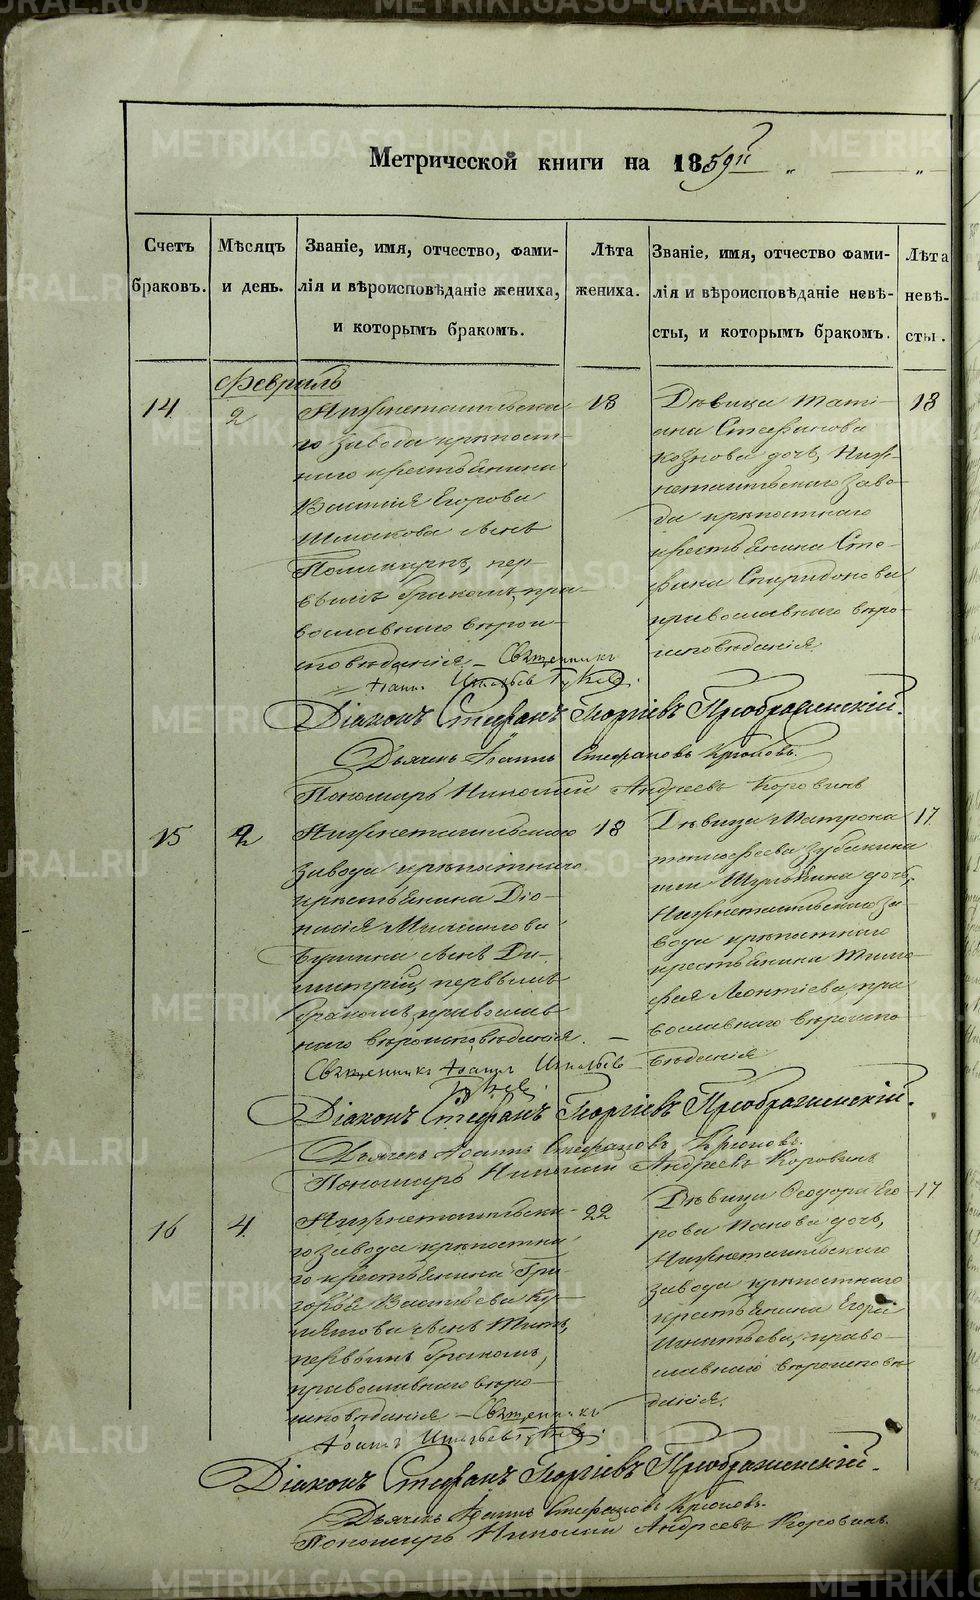 Метрической книги на 1859й
Счетъ браковъ.
Мѣсяцъ и день.
Званіе, имя, отчество, фами-
лія и вѣроисповѣданіе жениха,
и которымъ бракомъ.
Лѣта жениха.
Званіе, имя, отчество фами-
лія и вѣроисповѣданіе невѣ-
сты, и которымъ бракомъ.
Лѣта невѣ-
сты.
Февраль
14
2
Нижнетагильска-
го завода крѣпост-
наго крестьянина
Василія Егорова
сынъ
Поликарпъ, пер-
вымъ бракомъ, пра-
вославнаго вѣрои-
сповѣданія
18
Дѣвица Тати-
ана Стефанова
дочь, Ниж-
нетагильскаго заво-
да крѣпостнаго
крестьянина Сте-
фана Спиридонова
православнаго вѣро-
исповѣданія
18
Священникъ
Іоаннъ
Діаконъ Стефанъ Георгіевъ Преображенскій.
Дьячекъ Іоаннъ Стефановъ Крюковъ.
Пономарь Николай Андреевъ Коровинъ
15
2
Нижнетагильскаго
завода крѣпостнаго
крестьянина Діо-
нисія
сынъ Ди-
митрій, первымъ
бракомъ, православ-
наго вѣроисповѣданія.
18
Дѣвица Матрона
Тимофеева
или дочь,
Нижнетагильскаго за-
вода крѣпостнаго
крестьянина Тимо-
фея Леонтіева, пра
вославнаго вѣроиспо
вѣданія
17
Священникъ Іоаннъ
Діаконъ Стефанъ Георгіевъ Преображенскій.
Дьячекъ Іоаннъ Стефановъ Крюковъ.
Пономарь Николай Андреевъ Коровинъ
16
4
Нижнетагильска-
го завода крѣпостна-
го крестьянина Гри-
горья Васильева
сынъ Титъ,
первымъ бракомъ,
православнаго вѣро-
исповѣданія
22
Дѣвица Ѳеодора Его-
рова Панова дочь,
Нижнетагильскаго
завода крѣпостнаго
крестьянина Егора
Игнатьева, право-
славнаго вѣроисповѣ
данія.
17
Священникъ
Іоаннъ
Діаконъ Стефанъ Георгіевъ Преображенскій.
Дьячекъ Іоаннъ Стефановъ Крюковъ.
Пономарь Николай Андреевъ Коровинъ.
METRIKI.GASO-URAL.RU